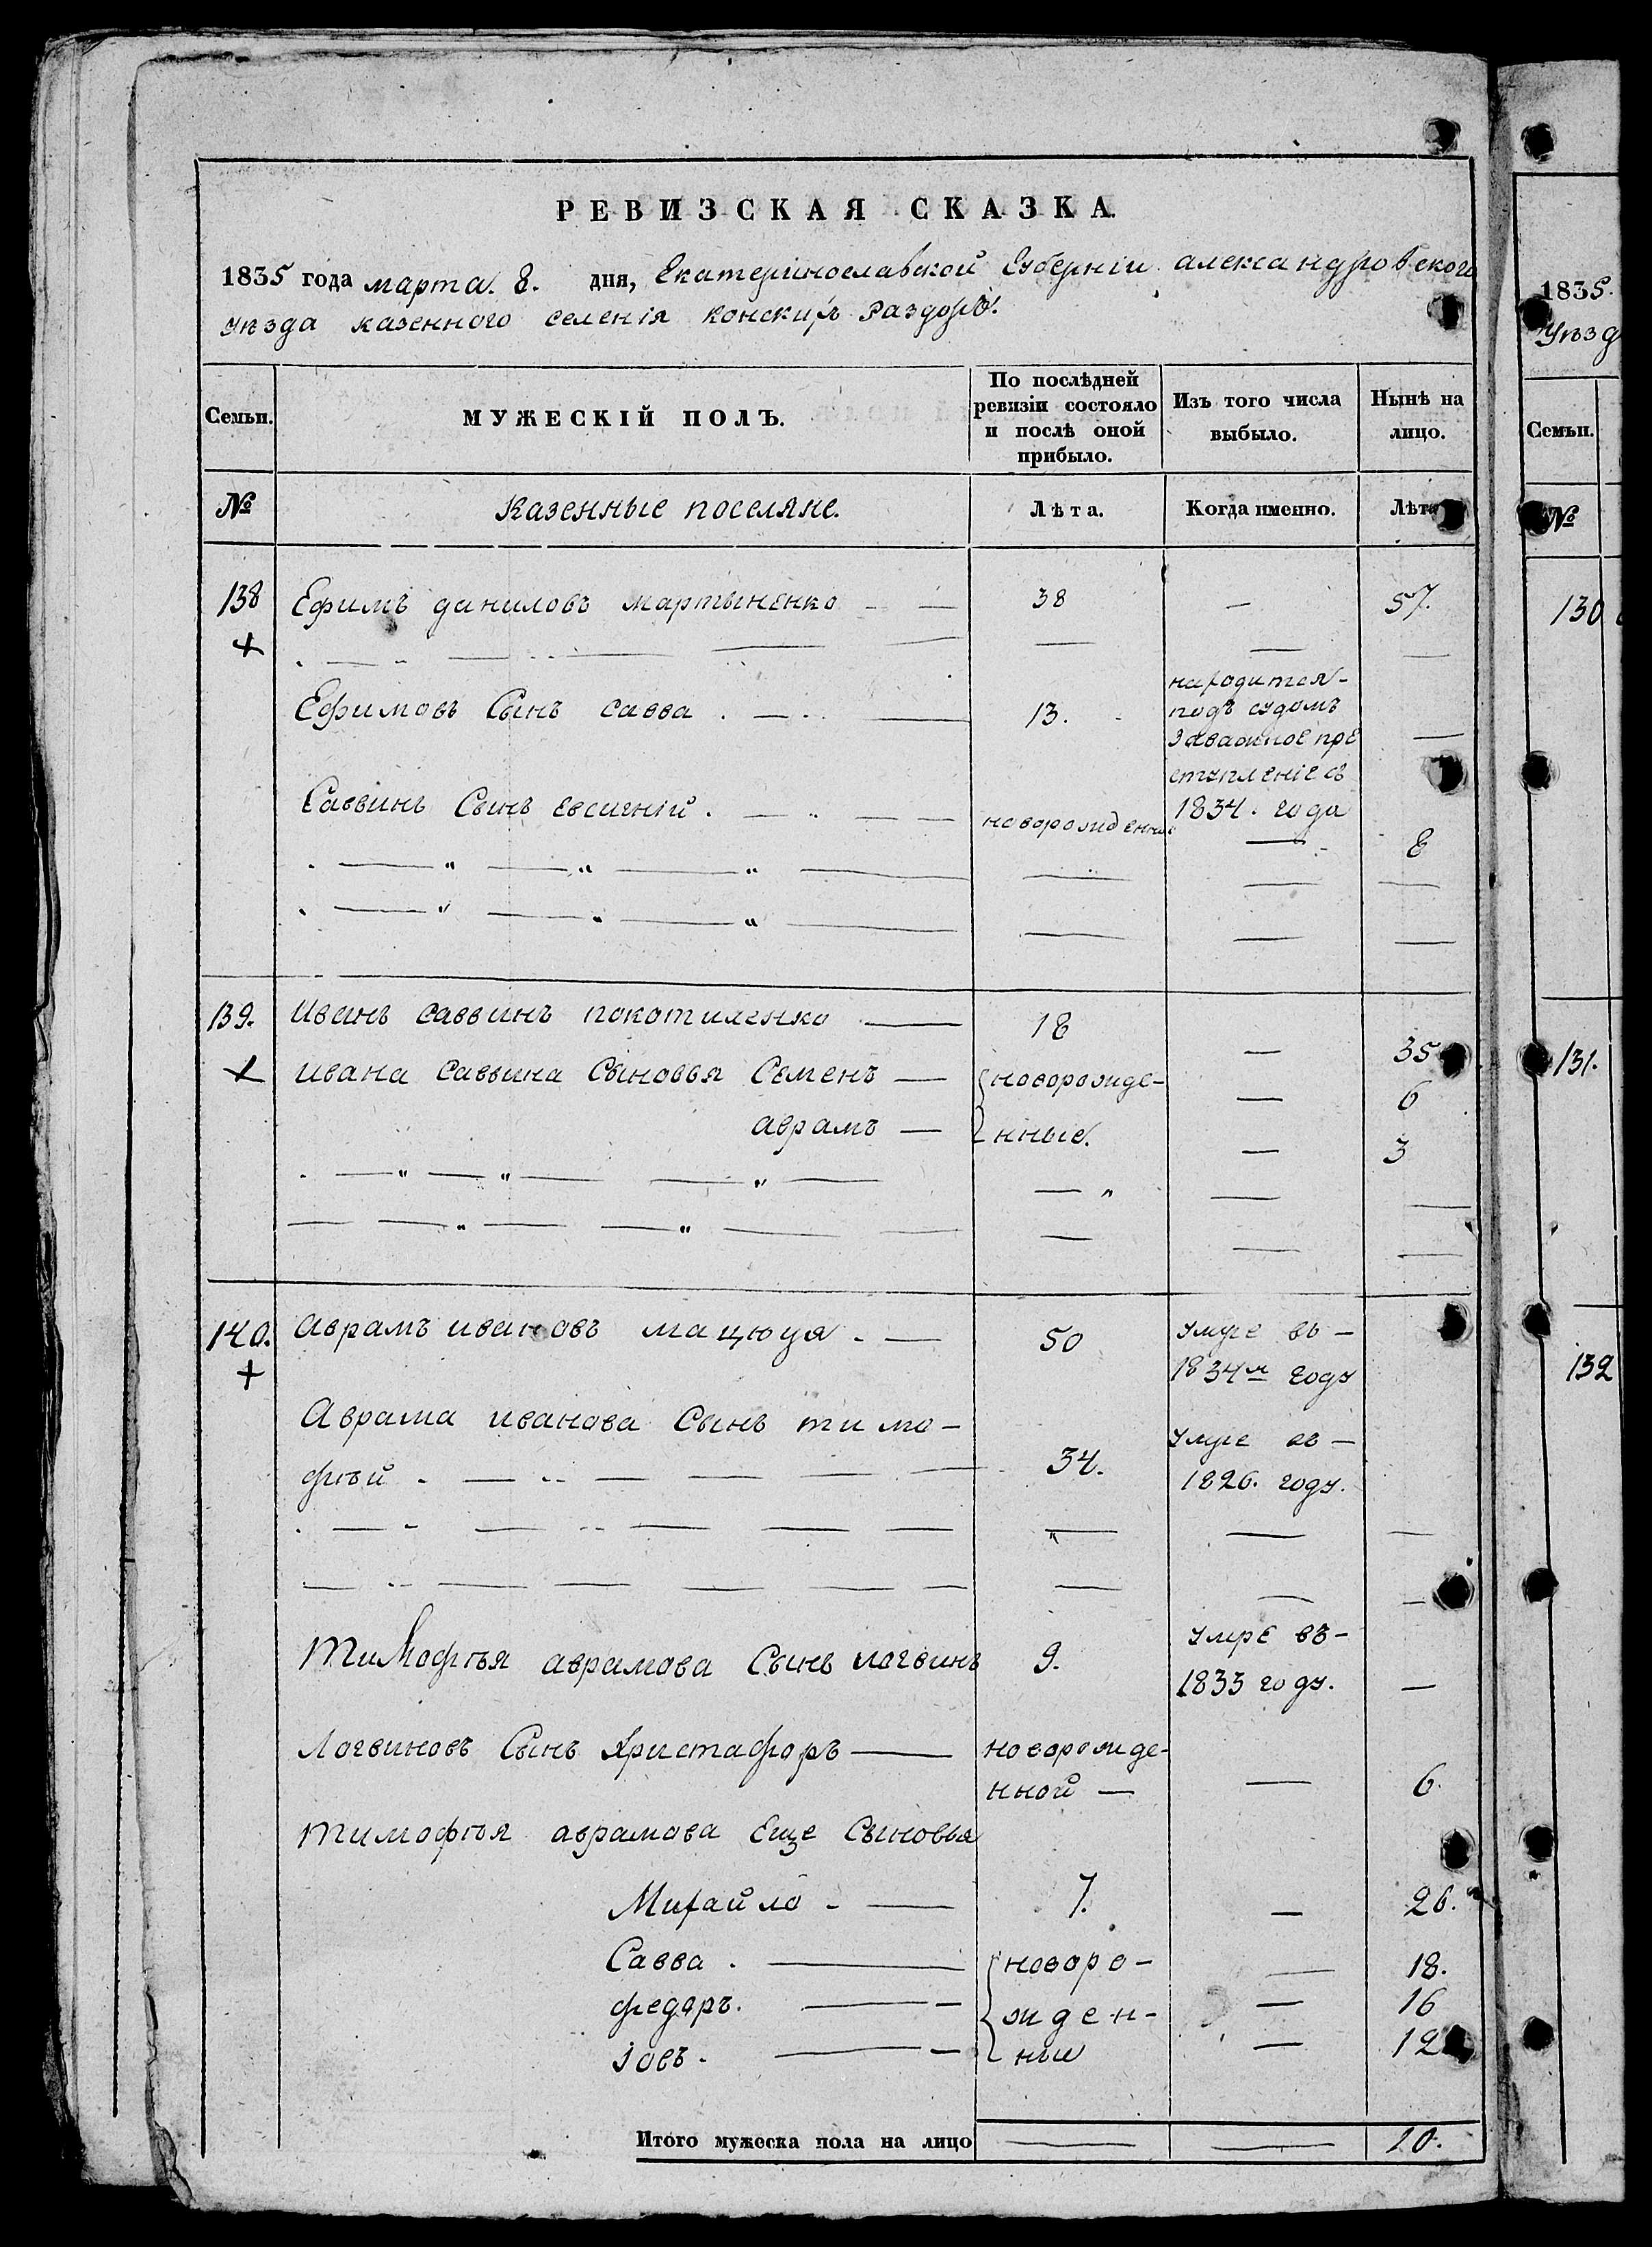 РЕВИЗСКАЯ СКАЗКА.
1835 года марта 8. дня, Екатеринославской Губернiи александровского
уѣзда казенного селенiя конскихъ Раздоръ.
Семьи. МУЖЕСКIЙ ПОЛЪ. По послѣдней ревизiи состояло и послѣ оной прибыло. Изъ того числа выбыло. Нынѣ на лицо.
№ Казенные поселяне. Лѣта. Когда именно. Лѣта
138 Ефимъ даниловъ мартыненко — — 38 — 57.
Ефимовъ Сынъ савва 13. находится-
подъ судомъ
Заважное пре
ступленiе съ
1834. года
Саввинъ Сынъ Евсигнiй. новорожденный — 8
139. Иванъ саввинъ покотиленко — 18 — 35
ивана саввина Сыновья Семенъ — новорожде- — 6
аврамъ — нные. — 3
140. аврамъ ивановъ мацюця. — 50 умре въ —
1834м году
Аврама иванова Сынъ тимо-
фѣй 34. умре въ —
1826. году.
Тимофѣя аврамова Сынъ логвинъ 9. умре въ-
1833 году. —
Логвиновъ Сынъ Христафоръ — новорожде-
нной — — 6.
Тимофѣя аврамова Еще Сыновья
Михайло — 7. — 26.
Савва. — новоро- — 18.
федоръ. — жден- — 16
Iовъ. — ныи — 12
Итого мужеска пола на лицо — — 10.
1835.
Уѣзд
Семьи.
№
130
131.
132